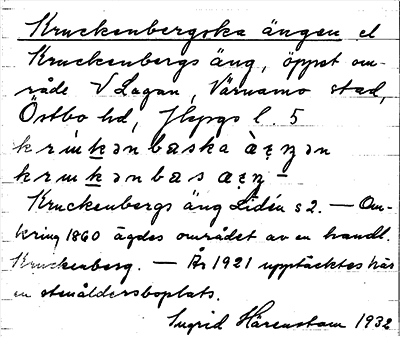 Kruckenbergska ängen el
Kruckenbergs äng, öppet om-
råde V Lagan, Värnamo stad,
Östbo hd, Jkpgs l. 5
kruḵənbæska æŋən
kruḵənbæs æŋ
Kruckenbergs äng Lidén s 2. — Om-
kring 1860 ägdes området av en handl.
Kruckenberg. — År 1921 upptäcktes här
en stenåldersboplats.
Ingrid Härenstam 1932